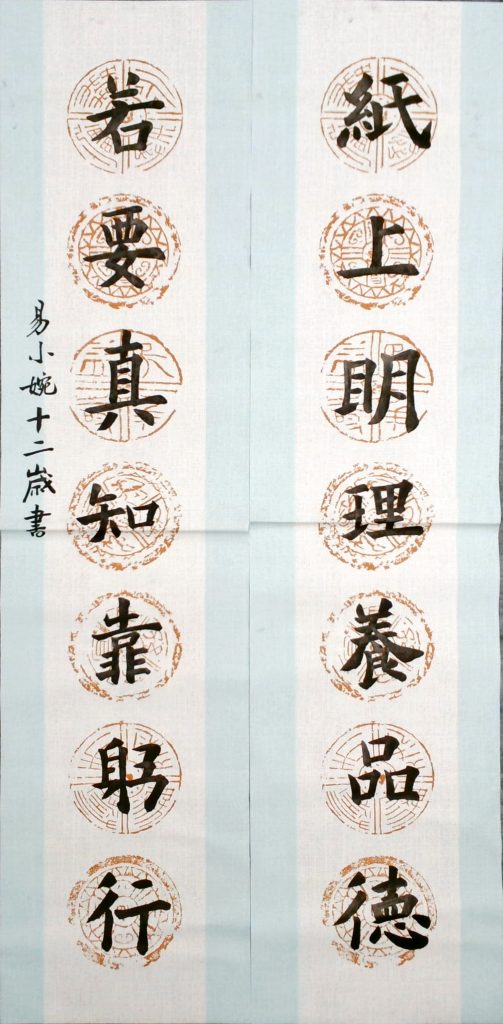 紙上明理養品德
若要真知靠躬行
易小婉十二歲書